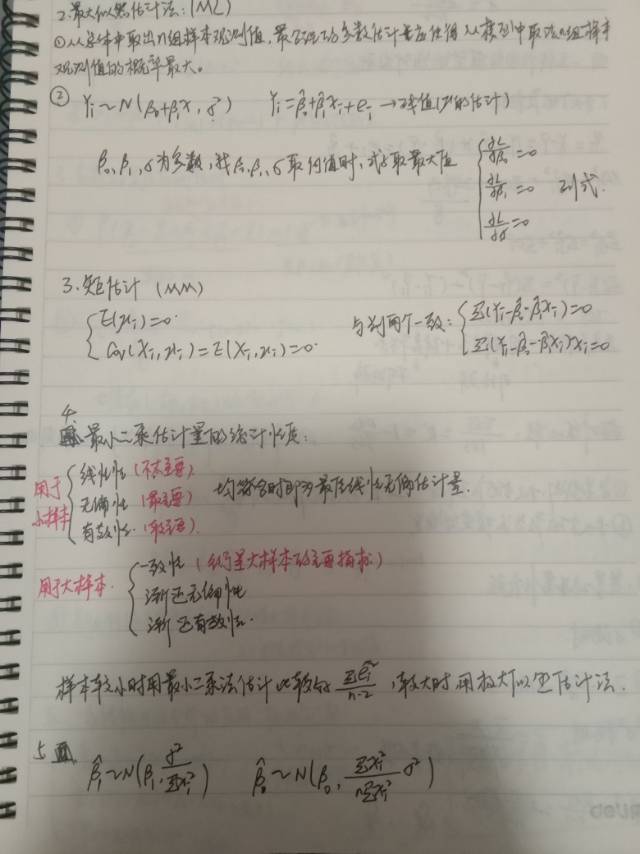 2.最大似然估计法:(ML)
①从总体中取出n组样本观测值,最合理的参数估计量应使得从模型中取该n组样本
观测值的概率最大。
② Yi~N(β₀+β₁X, σ²) Yi=β̂₀+β̂₁Xi+ei→残值(μ的估计)
β₀,β₁,σ为参数,找β₀,β₁,σ取何值时,式占取最大值 { ∂L/∂β₀=0
∂L/∂β₁=0 列式.
∂L/∂σ=0
3.矩估计 (MM)
{ E(μi)=0 与前两个一致: { Σ(Yi-β̂₀-β̂₁Xi)=0
Cov(Xi,μi)=E(Xi,μi)=0 Σ(Yi-β̂₀-β̂₁Xi)Xi=0
4.
最小二乘估计量的统计性质:
用于小样本 { 线性性 (不太重要)
无偏性 (最重要) 均符合时即为最佳线性无偏估计量.
有效性 (较重要)
用于大样本. { 一致性 (衡量大样本的主要指标)
渐近无偏性
渐近有效性.
样本较小时用最小二乘法估计比较好 Σei²/(n-2) ,较大时用极大似然估计法.
5 β̂₁~N(β₁, σ²/Σxi²) β̂₀~N(β₀, ΣXi²/nΣxi² σ²)